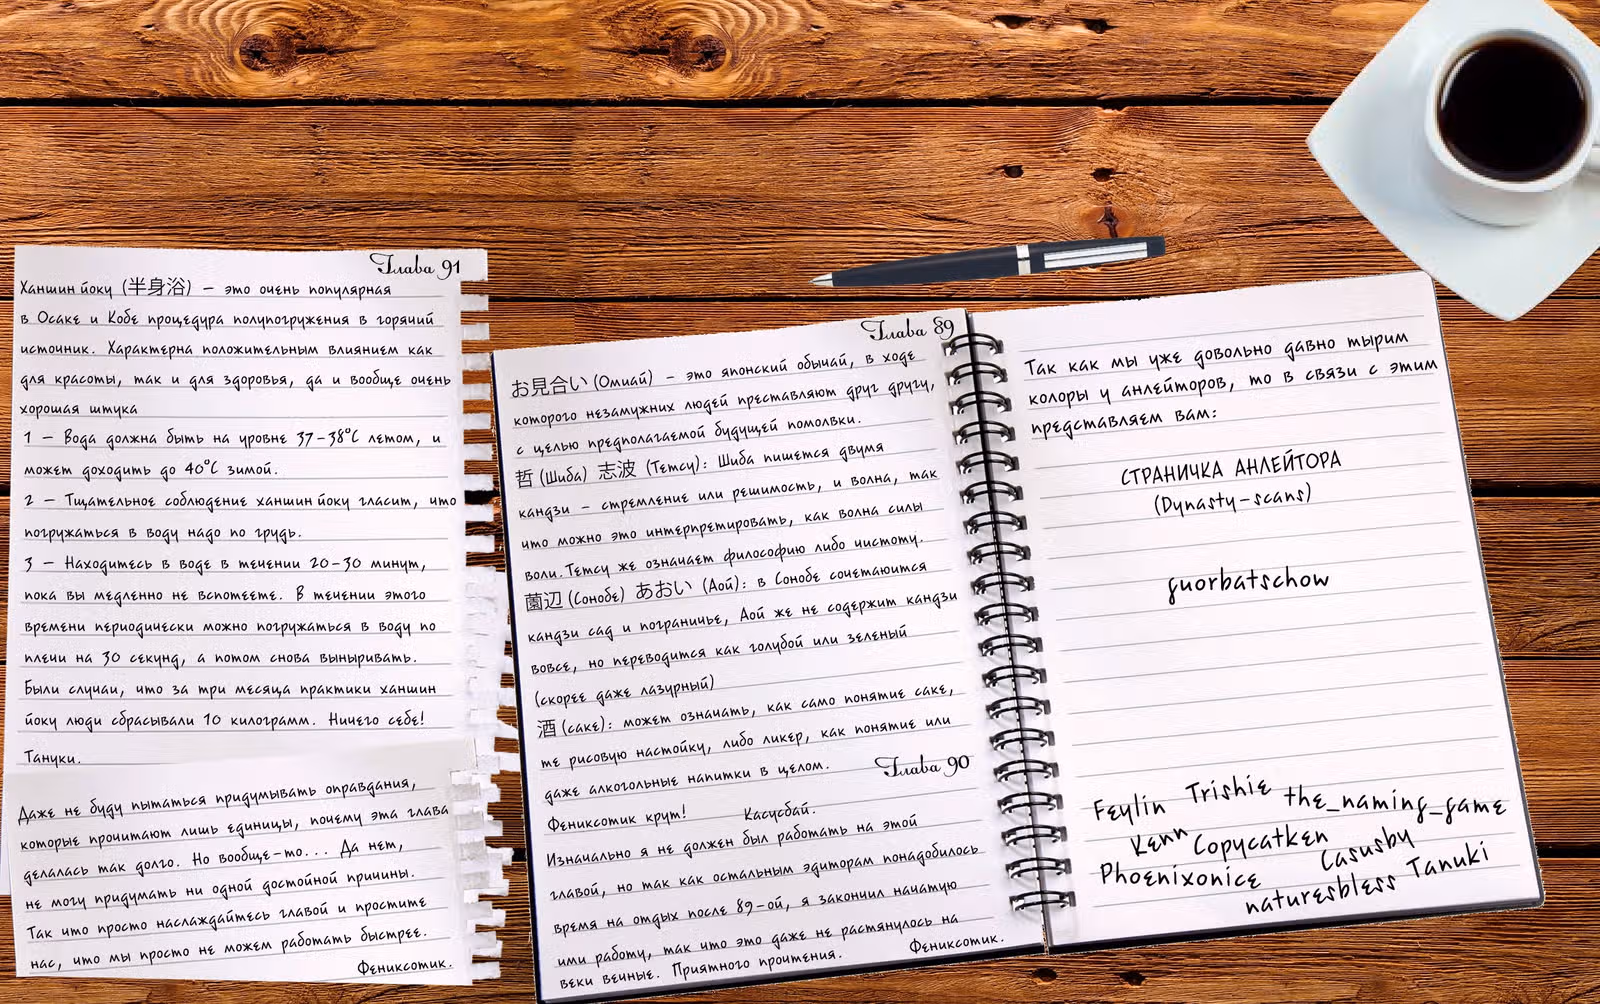 Глава 91
Ханшин йоку (半身浴) – это очень популярная
в Осаке и Кобе процедура полупогружения в горячий
источник. Характерна положительным влиянием как
для красоты, так и для здоровья, да и вообще очень
хорошая штука
1 – Вода должна быть на уровне 37–38°С летом, и
может доходить до 40°С зимой.
2 – Тщательное соблюдение ханшин йоку гласит, что
погружаться в воду надо по грудь.
3 – Находитесь в воде в течении 20–30 минут,
пока вы медленно не вспотеете. В течении этого
времени периодически можно погружаться в воду по
плечи на 30 секунд, а потом снова выныривать.
Были случаи, что за три месяца практики ханшин
йоку люди сбрасывали 10 килограмм. Ничего себе!
Тануки.
Даже не буду пытаться придумывать оправдания,
которые прочитают лишь единицы, почему эта глава
делалась так долго. Но вообще-то... Да нет,
не могу придумать ни одной достойной причины.
Так что просто наслаждайтесь главой и простите
нас, что мы просто не можем работать быстрее.
Фениксотик.
Глава 89
お見合い (Омиай) – это японский обычай, в ходе
которого незамужних людей преставляют друг другу,
с целью предполагаемой будущей помолвки.
哲 (Шиба) 志波 (Тетсу): Шиба пишется двумя
кандзи – стремление или решимость, и волна, так
что можно это интерпретировать, как волна силы
воли. Тетсу же означает философию либо чистоту.
薗辺 (Сонобе) あおい (Аой): в Сонобе сочетаются
кандзи сад и пограничье, Аой же не содержит кандзи
вовсе, но переводится как голубой или зеленый
(скорее даже лазурный)
酒 (саке): может означать, как само понятие саке,
те рисовую настойку, либо ликер, как понятие или
даже алкогольные напитки в целом.
Фениксотик крут! Касусбай.
Глава 90
Изначально я не должен был работать на этой
главой, но так как остальным эдиторам понадобилось
время на отдых после 89-ой, я закончил начатую
ими работу, так что это даже не растянулось на
веки вечные. Приятного прочтения. Фениксотик.
Так как мы уже довольно давно тырим
колоры у анлейторов, то в связи с этим
представляем вам:
СТРАНИЧКА АНЛЕЙТОРА
(Dynasty-scans)
guorbatschow
Feylin Trishie the_naming_game
Kenn Copycatken
Phoenixonice Casusby
naturesbless Tanuki